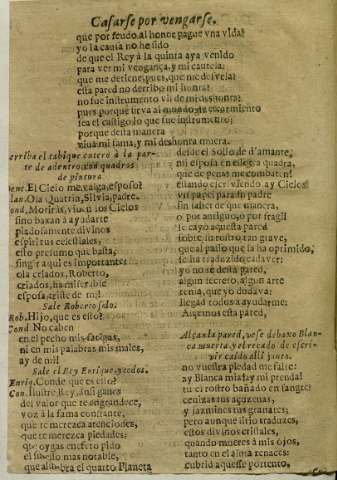 Casarse por vengarse.
que por feudo al honor pague vna vida?
yo la causa no he sido
de que el Rey à la quinta aya venido
para ver mi vengança, y mi cautela:
que me detiene, pues, que me desvela?
esta pared no derribo mi honra?
no fue instrumento vil de mi deshonra?
pues porque sirva al mundo de escarmiento
sea el castigo lo que fue instrumento;
porque desta manera
viua mi fama, y mi deshonra muera.
derriba el tabique entero à la par-
te de adentro, con quadros
de pintura
El Cielo me valga, esposo?
Ola Quatrin, Silvia, padre.
Moriràs, viuen los Cielos
sino baxan à ayudarte
piadosamente divinos
espiritus celestiales,
esto presumo que basta,
fingir aqui es importante:
ola criados, Roberto,
criados, ha miserable
esposa, triste de mi!
Sale Roberto solo.
Rob. Hijo, que es esto?
Cond. No caben
en el pecho mis fatigas,
ni en mis palabras mis males,
ay de mi!
Sale el Rey Enrique, y todos.
Enriq. Conde que es esto?
Con. Ilustre Rey, assi ganes
del valor que te engrandece,
voz à la fama constante,
que te merezca atenciones,
que te merezca piedades:
que oygas en este pido
el sucesso mas notable,
que alumbra el quarto Planeta
desde el Solio de diamante,
mi esposa en essa quadra,
que de penas me combaten!
estando escriviendo, ay Cielos
vn papel para su padre
sin saber de que manera,
o por antiguo, o por fragil
le cayò aquesta pared
sobre su rostro tan grave,
que al passo que la ha oprimido,
le ha traduzido cadaver:
yo no sè desta pared,
algun secreto, algun arte
tenia, que yo dudava:
llegad todos à ayudarme:
Alçemos esta pared,
Alçan la pared, vese debaxo Blan-
ca muerta, y el recado de escri-
vir caido alli junto.
no vuestra piedad me falte:
ay Blanca mia! ay mi prenda!
tu el rostro bañado en sangre?
cenizas tus açuzenas,
y jazmines tus granates;
pero aunque assi o traduzes,
estos divinos cristales,
quando mueres à mis ojos,
tanto en el alma renaces:
cubrid aquesse portento,